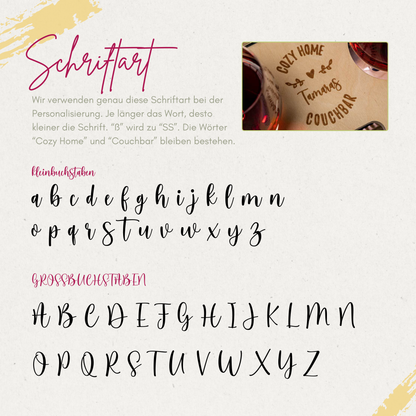 Schriftart
Wir verwenden genau diese Schriftart bei der
Personalisierung. Je länger das Wort, desto
kleiner die Schrift. "ß" wird zu "SS". Die Wörter
"Cozy Home" und "Couchbar" bleiben bestehen.
COZY HOME
Tamaras
COUCHBAR
kleinbuchstaben
a b c d e f g h i j k l m n
o p q r s t u v w x y z
GROSSBUCHSTABEN
A B C D E F G H I J K L M N
O P Q R S T U V W X Y Z